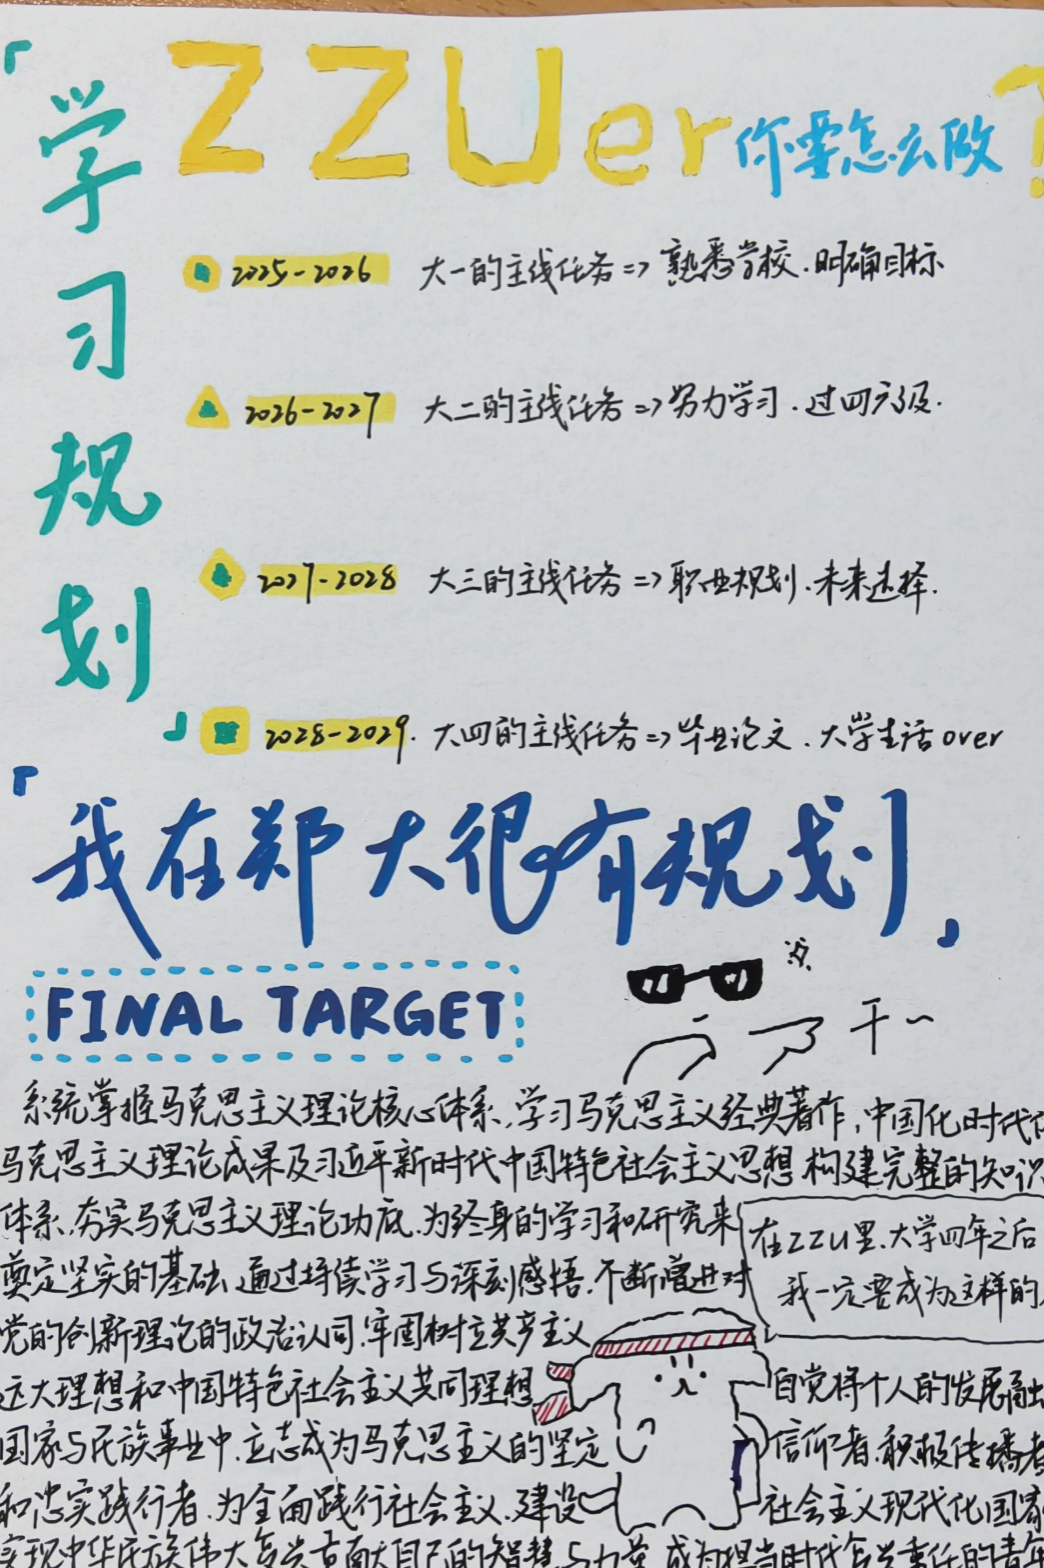 「学习规划」
ZZUer你要怎么做?
2025-2026 大一的主线任务=>熟悉学校.明确目标
2026-2027 大二的主线任务=>努力学习.过四六级.
2027-2028 大三的主线任务=>职业规划.未来选择.
2028-2029. 大四的主线任务=>毕业论文.大学生活over
「我在郑大很有规划」
FINAL TARGET
干~
系统掌握马克思主义理论核心体系,学习马克思主义经典著作,中国化时代
马克思主义理论成果及习近平新时代中国特色社会主义思想 构建完整的知识
体系、夯实马克思主义理论功底.为终身的学习和研究来
奠定坚实的基础、通过持续学习与深刻感悟.不断增进对
党的创新理论的政治认同.牢固树立共产主义
远大理想和中国特色社会主义共同理想 自觉将个人的发展融
国家与民族事业中.立志成为马克思主义的坚定 信仰者.积极传播者
和忠实践行者.为全面践行社会主义.建设 社会主义现代化国家
实现中华民族伟大复兴贡献自己的智慧与力量 成为担当时代复兴重任的青年
在ZZU里.大学四年之后
我一定要成为这样的